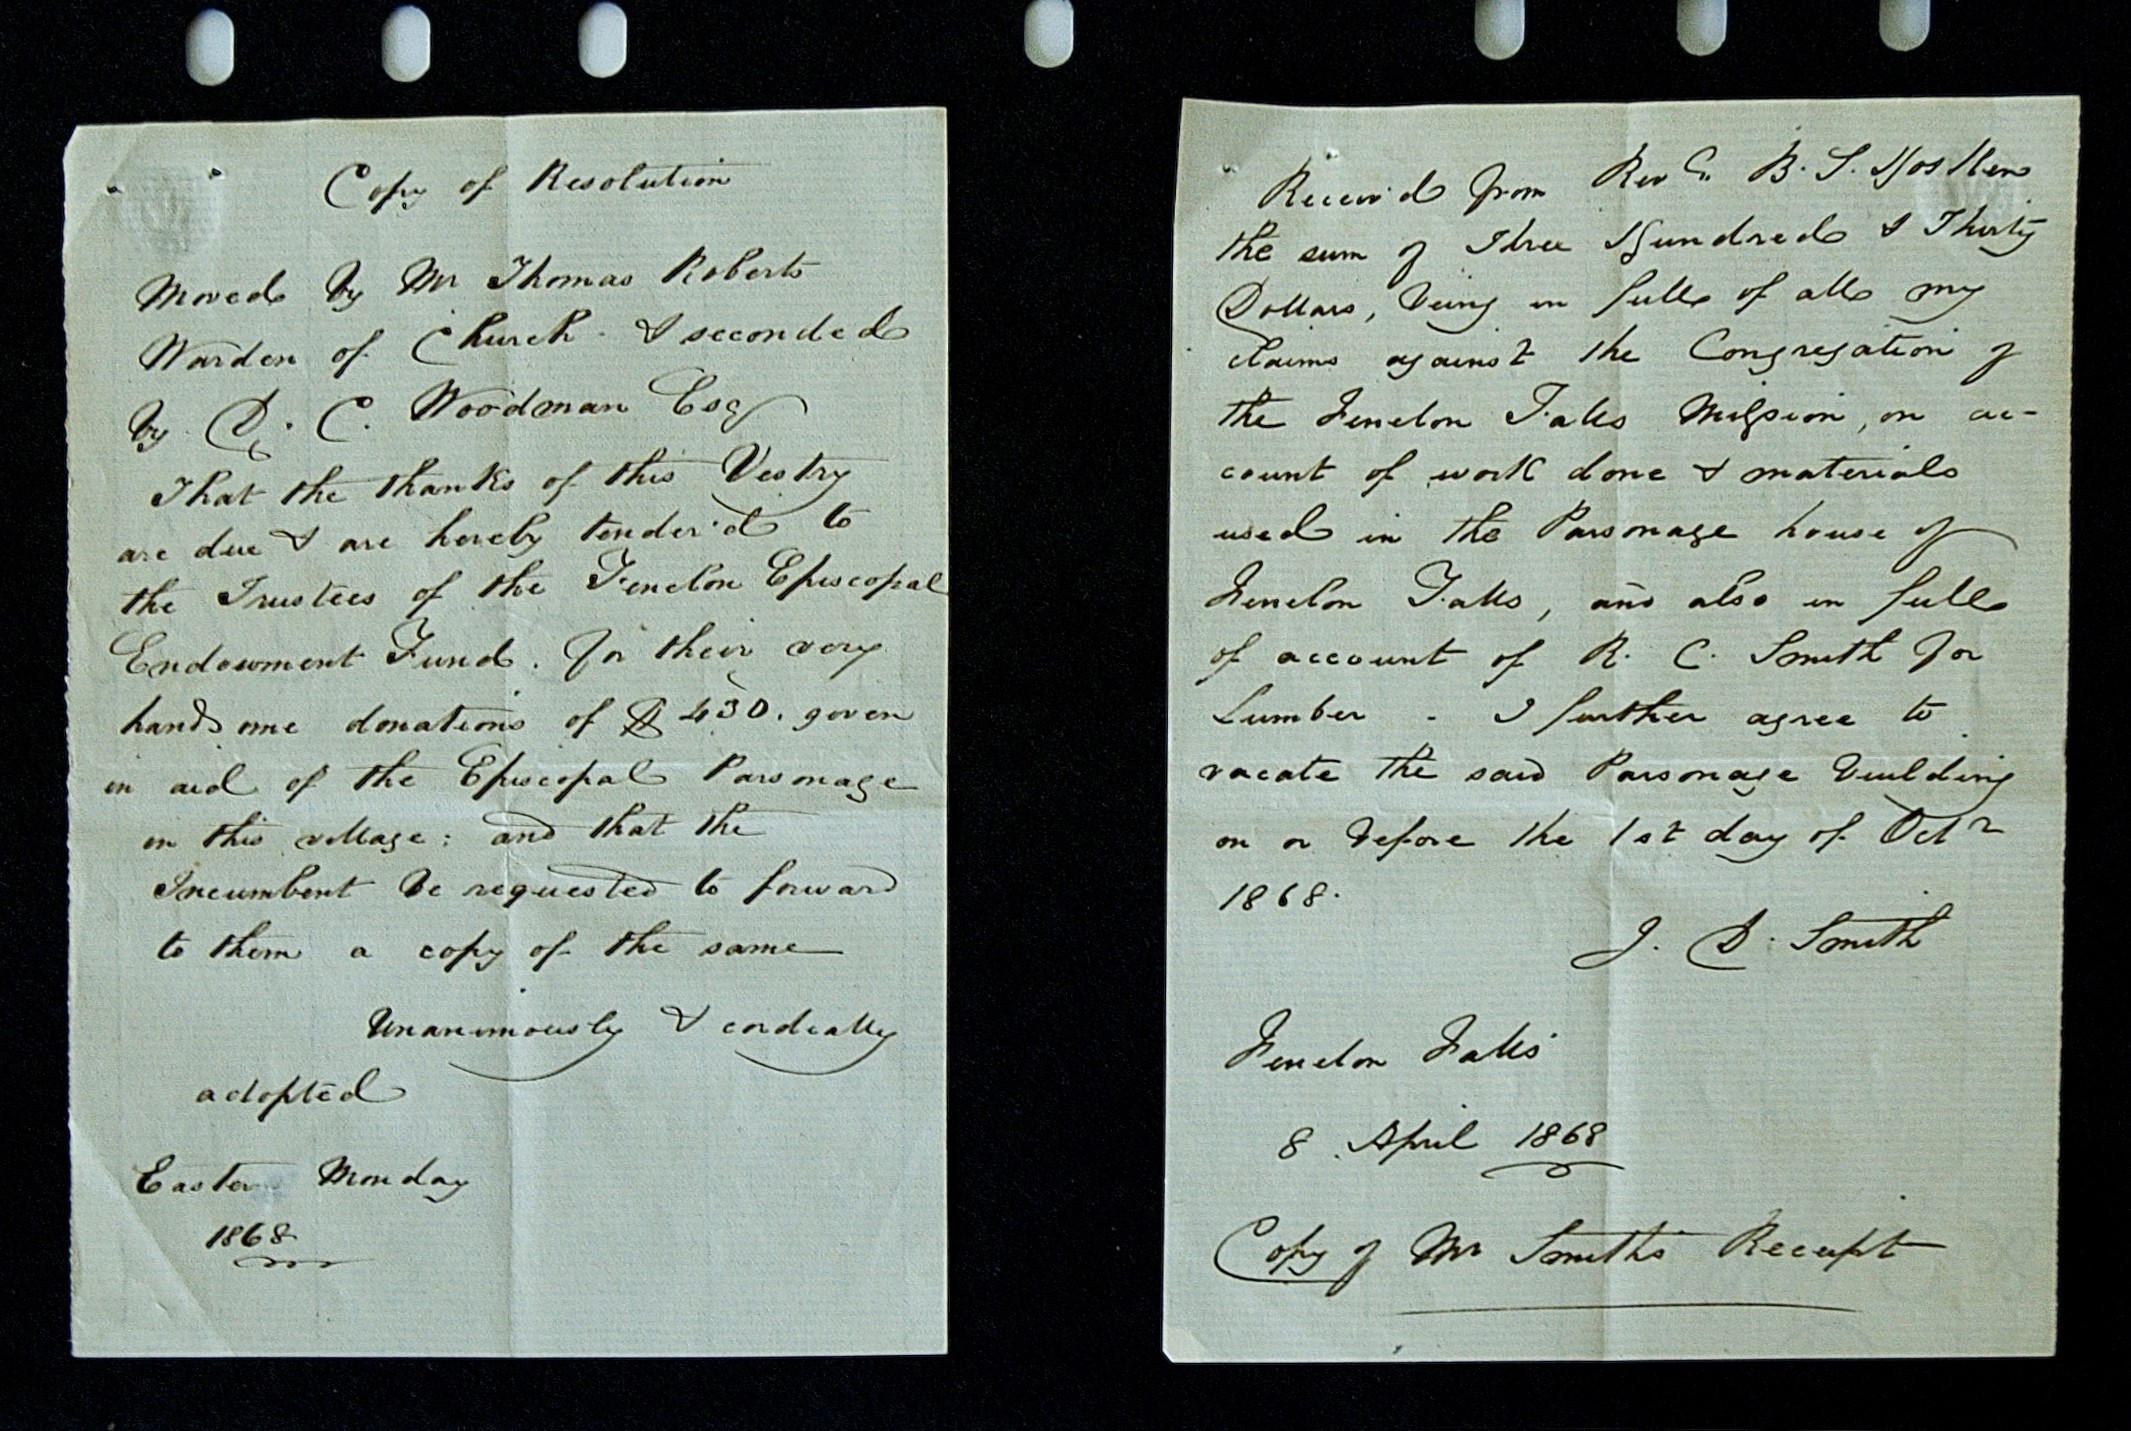 Copy of Resolution
Moved by Mr Thomas Roberts
Warden of Church & seconded
by D. C. Woodman Esq
That the thanks of this Vestry
are due & are hereby tender'd to
the Trustees of the Fenelon Episcopal
Endowment Fund. for their very
handsome donations of $430. given
in aid of the Episcopal Parsonage
in this village; and that the
Incumbent be requested to forward
to them a copy of the same
Unanimously & cordially
adopted
Easter Monday
1868
Receiv'd from Revd. B. S.
the sum of Three Hundred & Thirty
Dollars, being in full of all my
claims against the Congregation of
the Fenelon Falls Mission, on ac-
count of work done & materials
used in the Parsonage house of
Fenelon Falls, and also in full
of account of R. C. Smith for
Lumber - I further agree to
vacate the said Parsonage building
on or before the 1st day of Octr
1868.
J. D. Smith
Fenelon Falls
8 April 1868
Copy of Mr Smith's Receipt